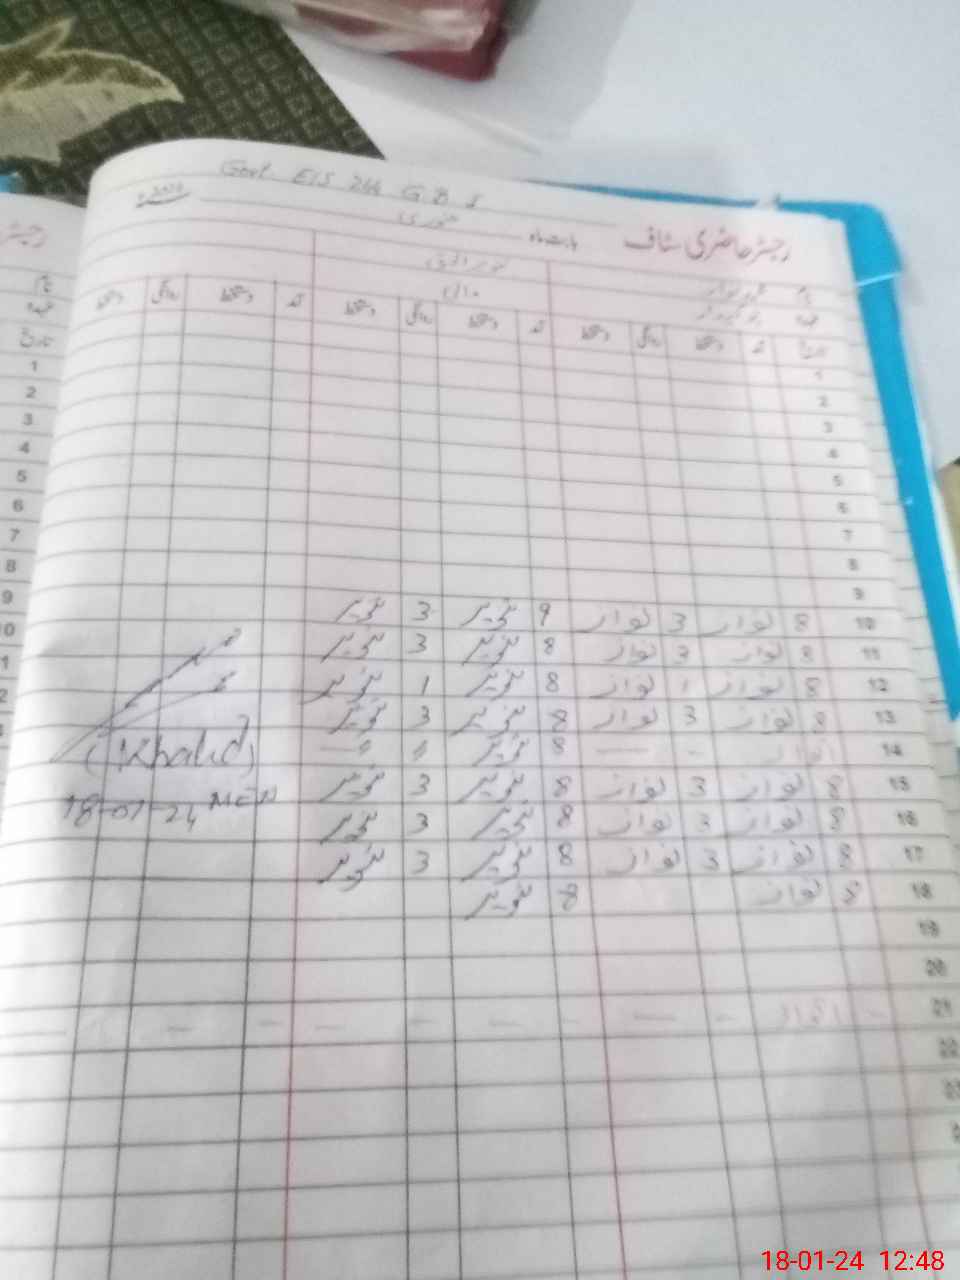 Govt E/S 266 G.B I
رجسٹر حاضری سٹاف بابت ماہ جنوری 2024
نام
عہدہ مالی
تاریخ آمد دستخط روانگی دستخط آمد دستخط روانگی دستخط آمد دستخط روانگی دستخط
1
2
3
4
5
6
7
8
9
10 8 نواز 3 نواز 9 تنویر 3 تنویر
11 8 نواز 3 نواز 8 تنویر 3 تنویر
12 8 نواز 1 نواز 8 تنویر 1 تنویر
13 8 نواز 3 نواز 8 تنویر 3 تنویر
14 اتوار - — 8 تنویر
15 8 نواز 3 نواز 8 تنویر 3 تنویر
16 8 نواز 3 نواز 8 تنویر 3 تنویر
17 8 نواز 3 نواز 8 تنویر 3 تنویر
18 8 نواز 8 تنویر
19
20
21 - اتوار - — - — - — - —
22
23
(Khalid)
18-01-24 MEA
رجسٹر
نام
عہدہ
تاریخ
1
2
3
4
5
6
7
8
9
10
18-01-24 12:48